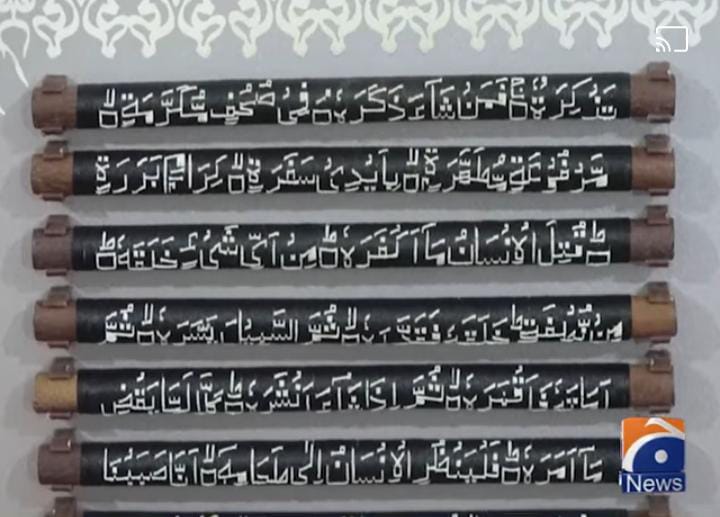 تَذْكِرَةٌ ۚ فَمَنْ شَآءَ ذَكَرَهٗ ۘ فِىْ صُحُفٍ مُّكَرَّمَةٍ ۙ
مَّرْفُوْعَةٍ مُّطَهَّرَةٍ ۙ بِاَيْدِىْ سَفَرَةٍ ۙ كِرَامٍۭ بَرَرَةٍ
ؕ قُتِلَ الْاِنْسَانُ مَآ اَكْفَرَهٗ ؕ مِنْ اَىِّ شَىْءٍ خَلَقَهٗ ؕ
مِنْ نُّطْفَةٍ ؕ خَلَقَهٗ فَقَدَّرَهٗ ۙ ثُمَّ السَّبِيْلَ يَسَّرَهٗ ۙ ثُمَّ
اَمَاتَهٗ فَاَقْبَرَهٗ ۙ ثُمَّ اِذَا شَآءَ اَنْشَرَهٗ ؕ كَلَّا لَمَّا يَقْضِ
مَآ اَمَرَهٗ ؕ فَلْيَنْظُرِ الْاِنْسَانُ اِلٰى طَعَامِهٖۤ ۙ اَنَّا صَبَبْنَا
News